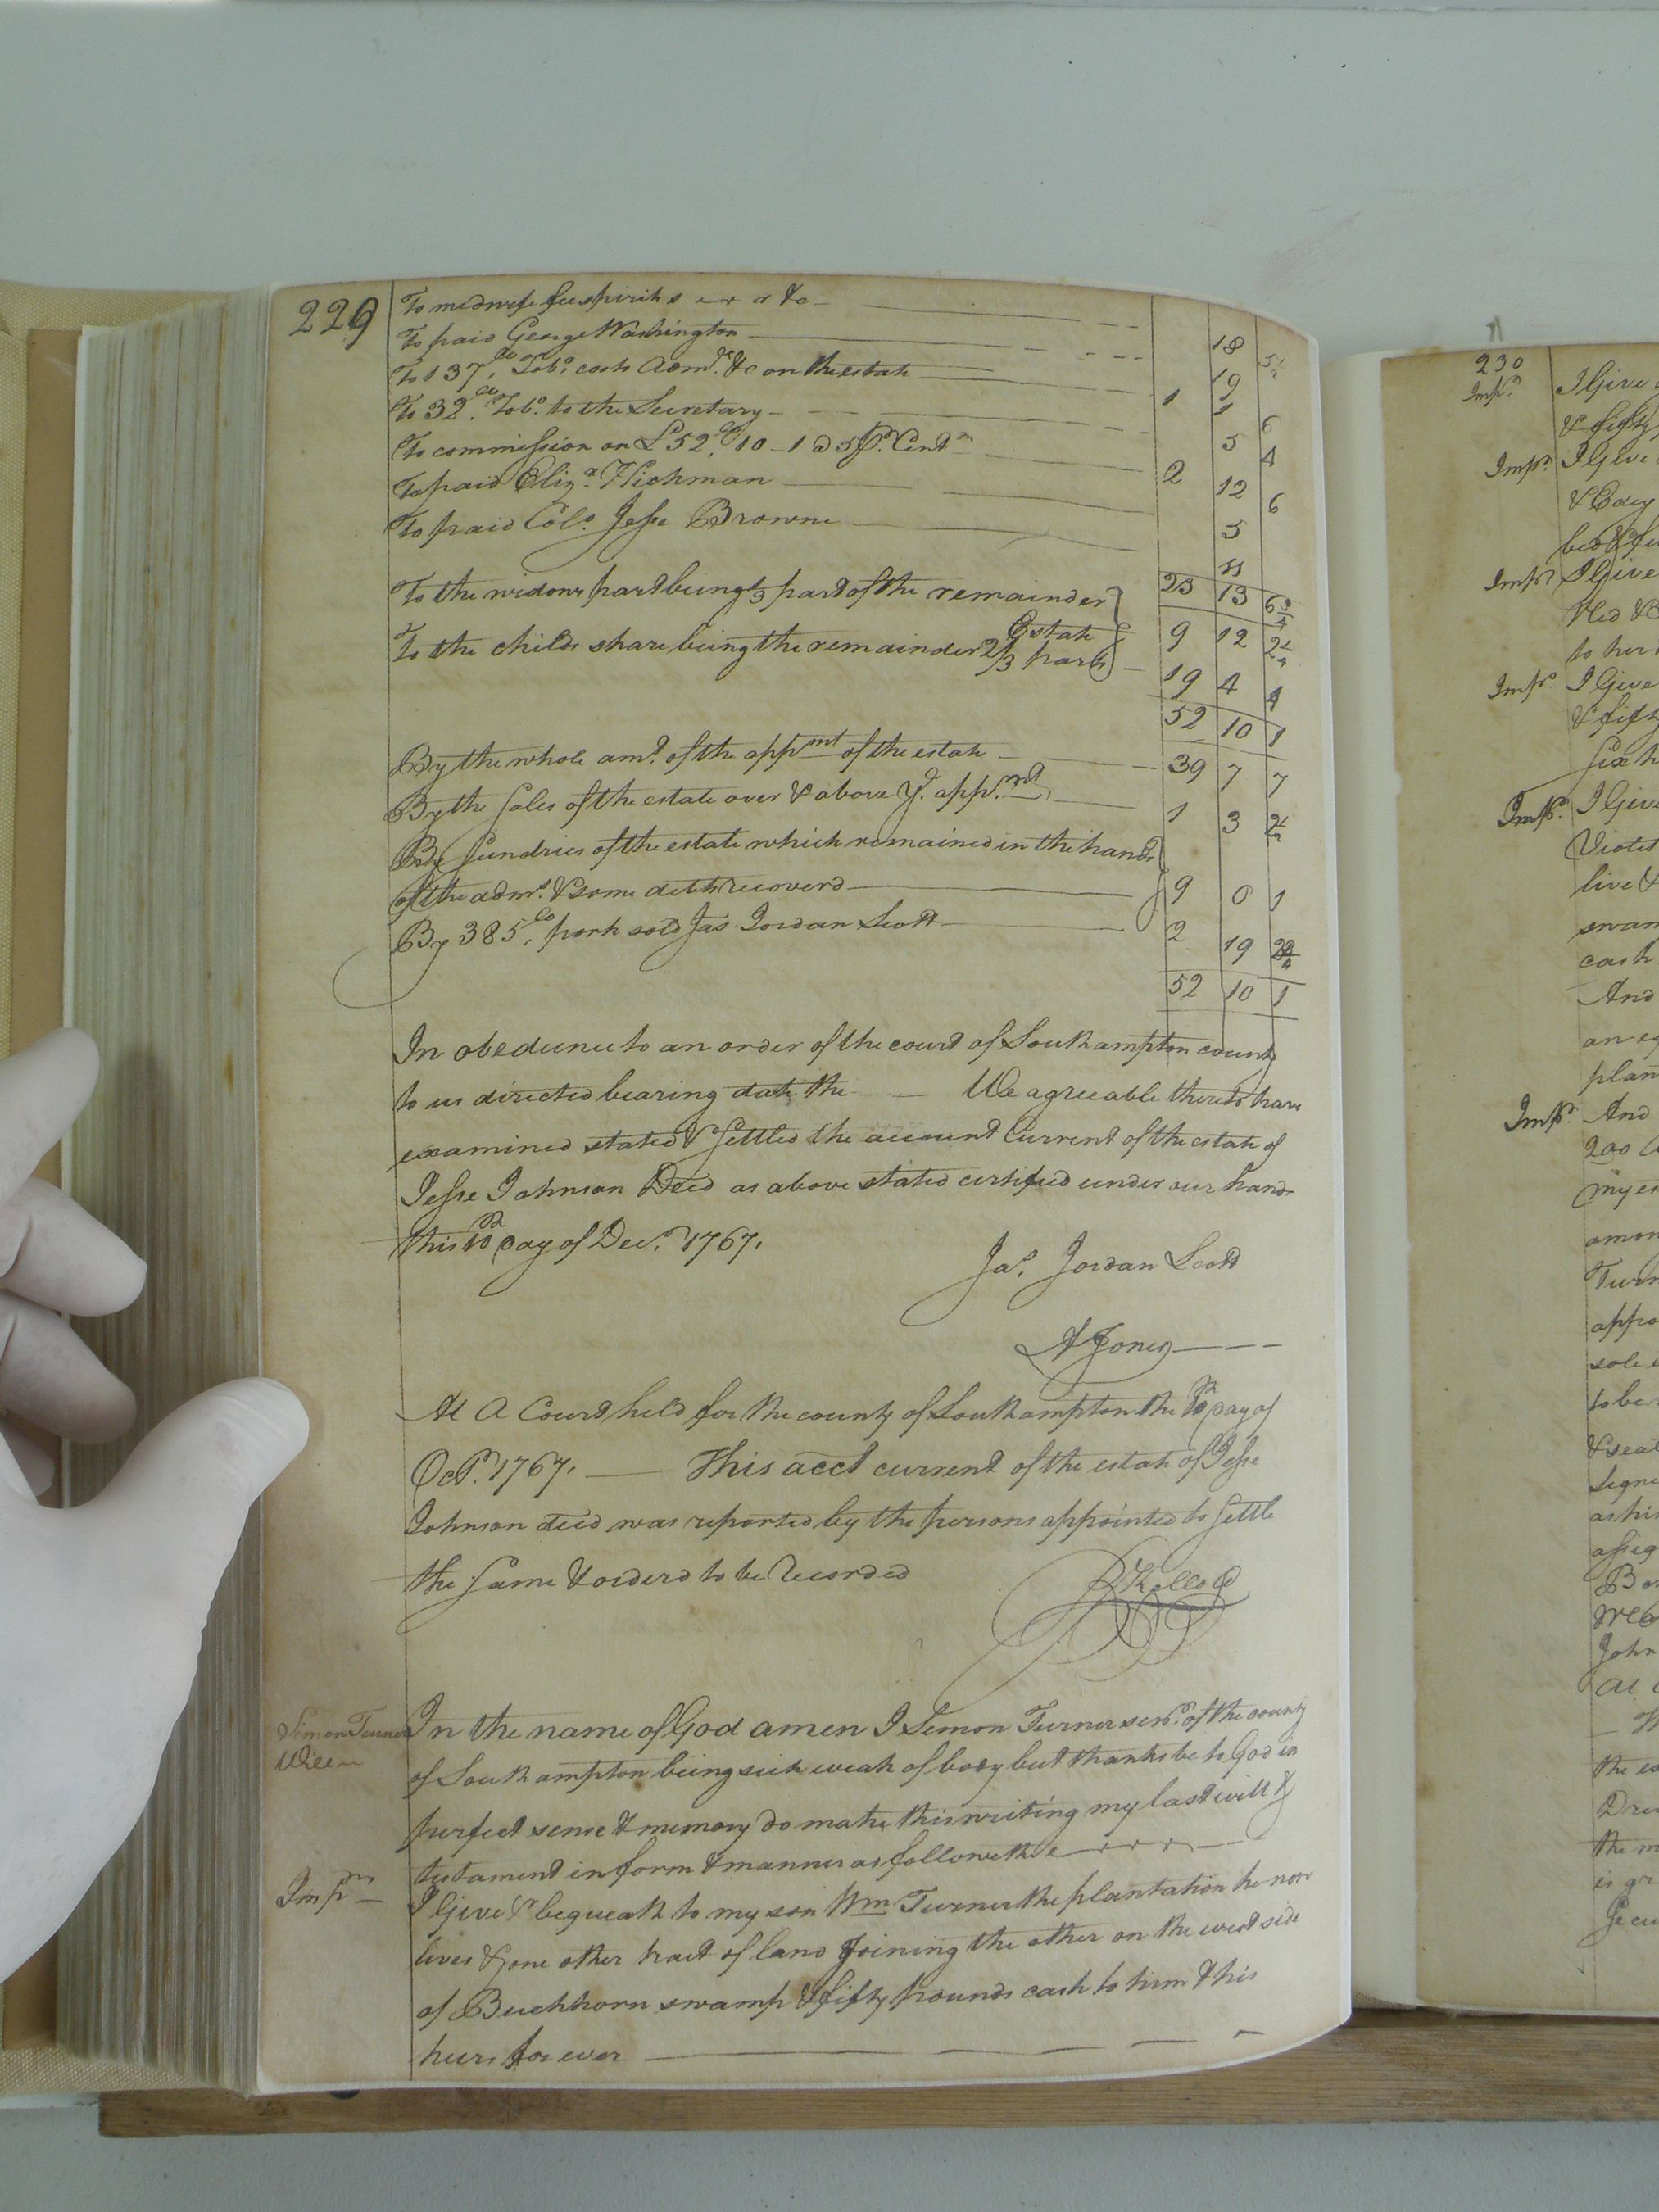 229
To midwife fee spirits &c
To paid George Washington 18 5 1/2
To 137 lb Tobo. costs Admr. &c on the estate 19
To 32 lb Tobo. to the Secretary 1 1 6
To commission on £52.10-1 @ 5 Pr. Cent 5 4
To paid Eliza. Hickman 2 12 6
To paid Colo. Jesse Browne 5
11
To the widows part being 1/3 part of the remainder 23 13 6 3/4
Estate 9 12 2 1/4
To the childs share being the remainder 2/3 parts 19 4 4
52 10 1
By the whole amt. of the appmt of the estate 39 7 7
By the Sales of the estate over & above ye. appmt. 1 3 2 1/2
By Sundries of the estate which remained in the hands
of the admr. & some debts recoverd 9 0 1
By 385 lb pork sold Jas Jordan Scott 2 19 2
52 10 1
In obedience to an order of the court of Southampton county
to us directed bearing date the We agreeable thereto have
examined stated & Settled the account Current of the estate of
Jesse Johnson Decd as above stated certified under our hands
this 10th day of Decr. 1767.
Jas. Jordan Scott
A Jones
At A Court held for the county of Southampton the day of
Octr. 1767. This acct current of the estate of Jesse
Johnson decd was reported by the persons appointed to Settle
the Same & orderd to be Recorded
R Kello
Simon Turner Will
In the name of God amen I Simon Turner senr. of the county
of Southampton being sick weak of body but thanks be to God in
perfect sense & memory do make this writing my last will &
testament in form & manner as followeth
Impm I Give & bequeath to my son Wm Turner the plantation he now
lives & one other tract of land Joining the other on the west side
of Buckhorn swamp & fifty pounds cash to him & his
heirs for ever
230
Impr. I Give
& fifty
Impr. I Give
& Edey
bed & fu
Impr. I Give
bed & B
to her
Impr. I Give
& fifty
Six h
Impr. I Give
Violet
live &
swam
cash
And
an eq
plan
Impr. And
200
my es
amon
Turn
appo
sole e
to be
& seal
Signe
as his
assig
John
At
the es
the m
is gr
Secu